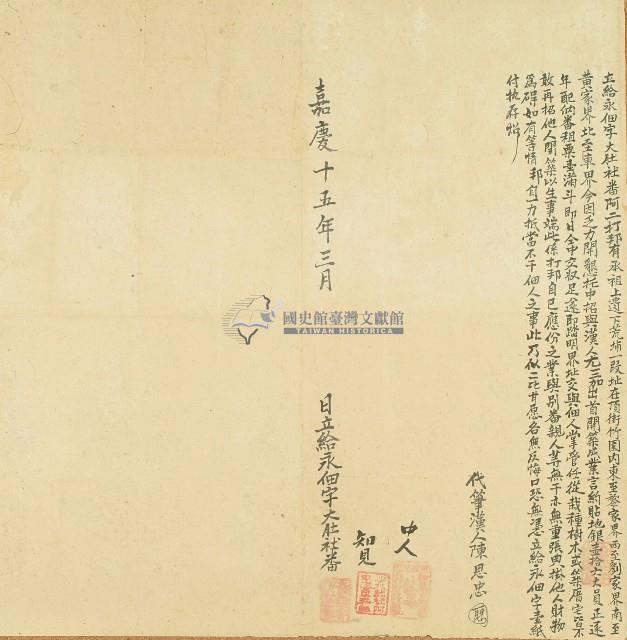 立給永佃字大肚社番阿二打邦有承祖上遺下荒埔一段址在頂街竹圍內東至蔡家界西至劉家界南至
黃家界北至車界今因乏力開懇托中招與漢人尤三加出首開築成業言約貼地銀壹拾六大員正逐
年配納番租粟壹滿斗即日仝中交收足遂即踏明界址交與佃人掌管任從栽種樹木或築厝宅皆不
敢再招他人開築以生事端此係打邦自己應份之業與別番親人等無干亦無重張典掛他人財物
為碍如有等情邦自一力抵當不干佃人之事此乃似二比甘愿各無反悔口恐無憑立給永佃字壹紙
付执存炤
代筆漢人陳思忠
中人
知見
嘉慶十五年三月
日立給永佃字大肚社番
國史館臺灣文獻館
TAIWAN HISTORICA